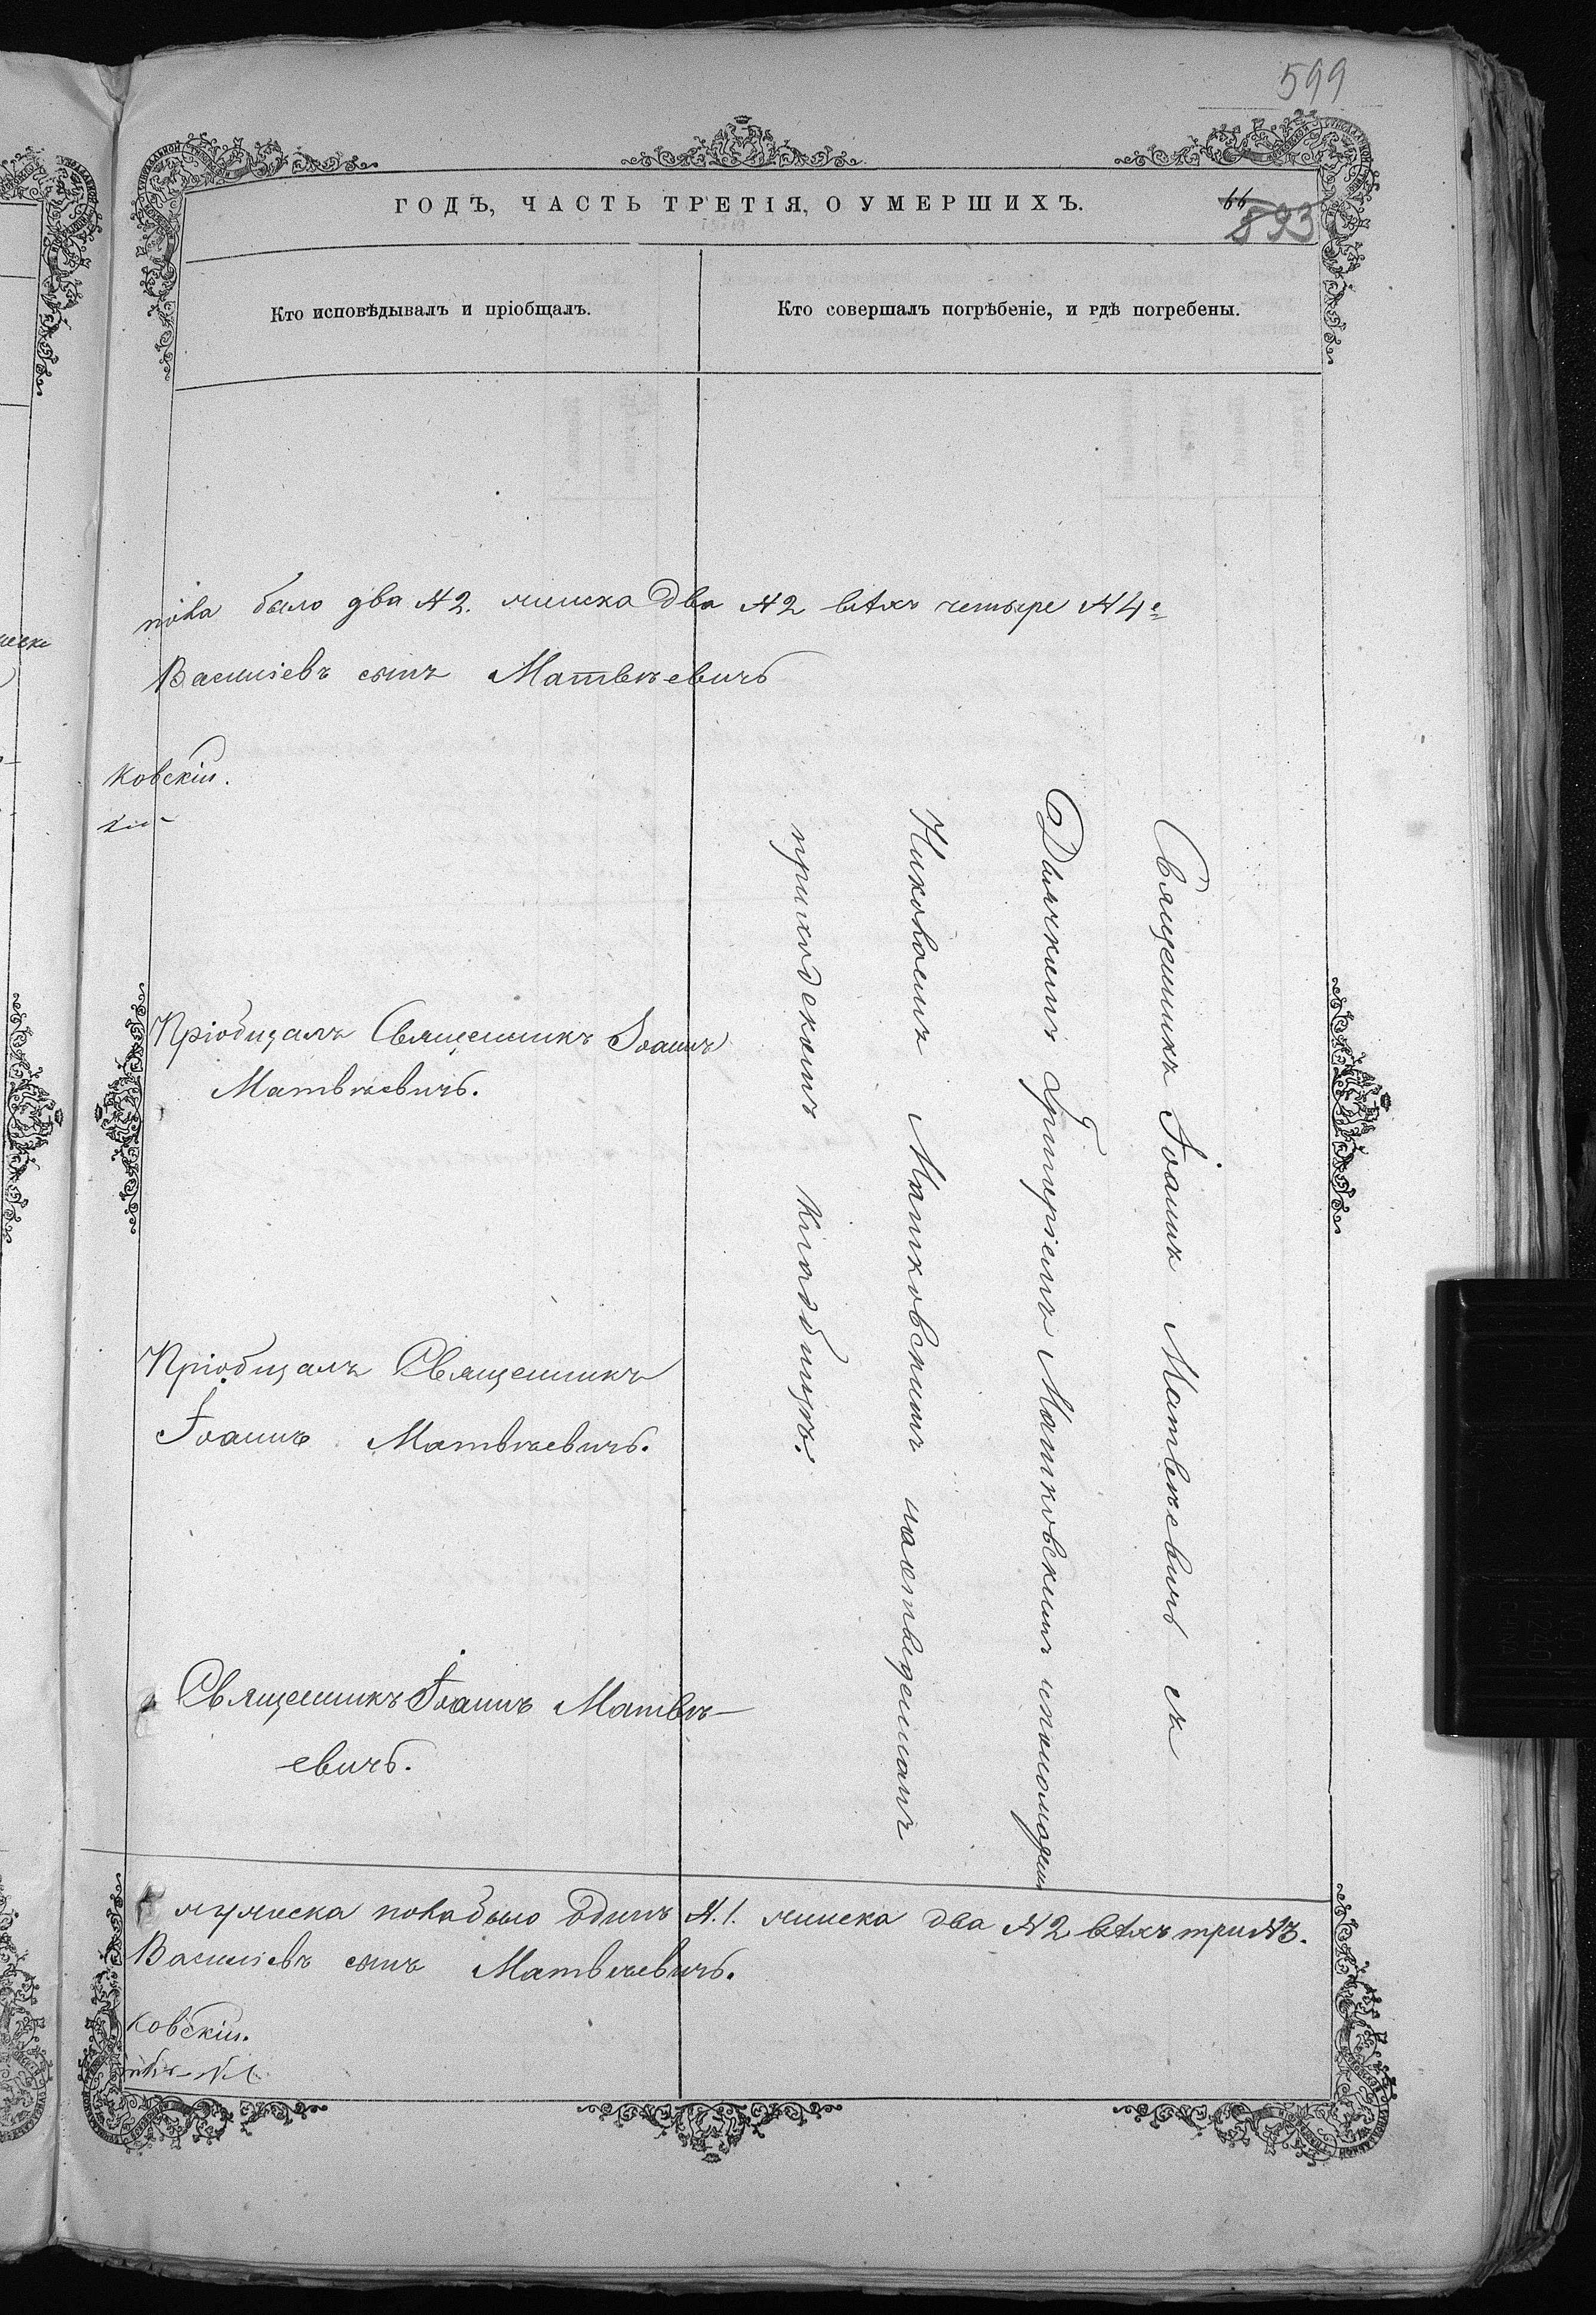 599
ГОДЪ, ЧАСТЬ ТРЕТІЯ, О УМЕРШИХЪ.
66
893
Кто исповѣдывалъ и пріобщалъ.
Кто совершалъ погрѣбеніе, и гдѣ погребены.
пола было два №2. женска два №2 всѣхъ четыре №4е
Василіевъ сынъ Матвѣевичъ
ковскій.
Пріобщалъ Священникъ Іоаннъ
Матвѣевичъ.
Пріобщалъ Священникъ
Іоаннъ Матвѣевичъ.
Священникъ Іоаннъ Матвѣ-
евичъ.
Священникъ Іоаннъ Матвѣевичъ съ
Дьячкомъ Григоріемъ Матковскимъ и пономаремъ
Николаемъ Матковскимъ на отведенномъ
приходскомъ кладбищѣ.
мужеска пола было одинъ №.1. женска два №2 всѣхъ три №3.
Василіевъ сынъ Матвѣевичъ.
ковскій.